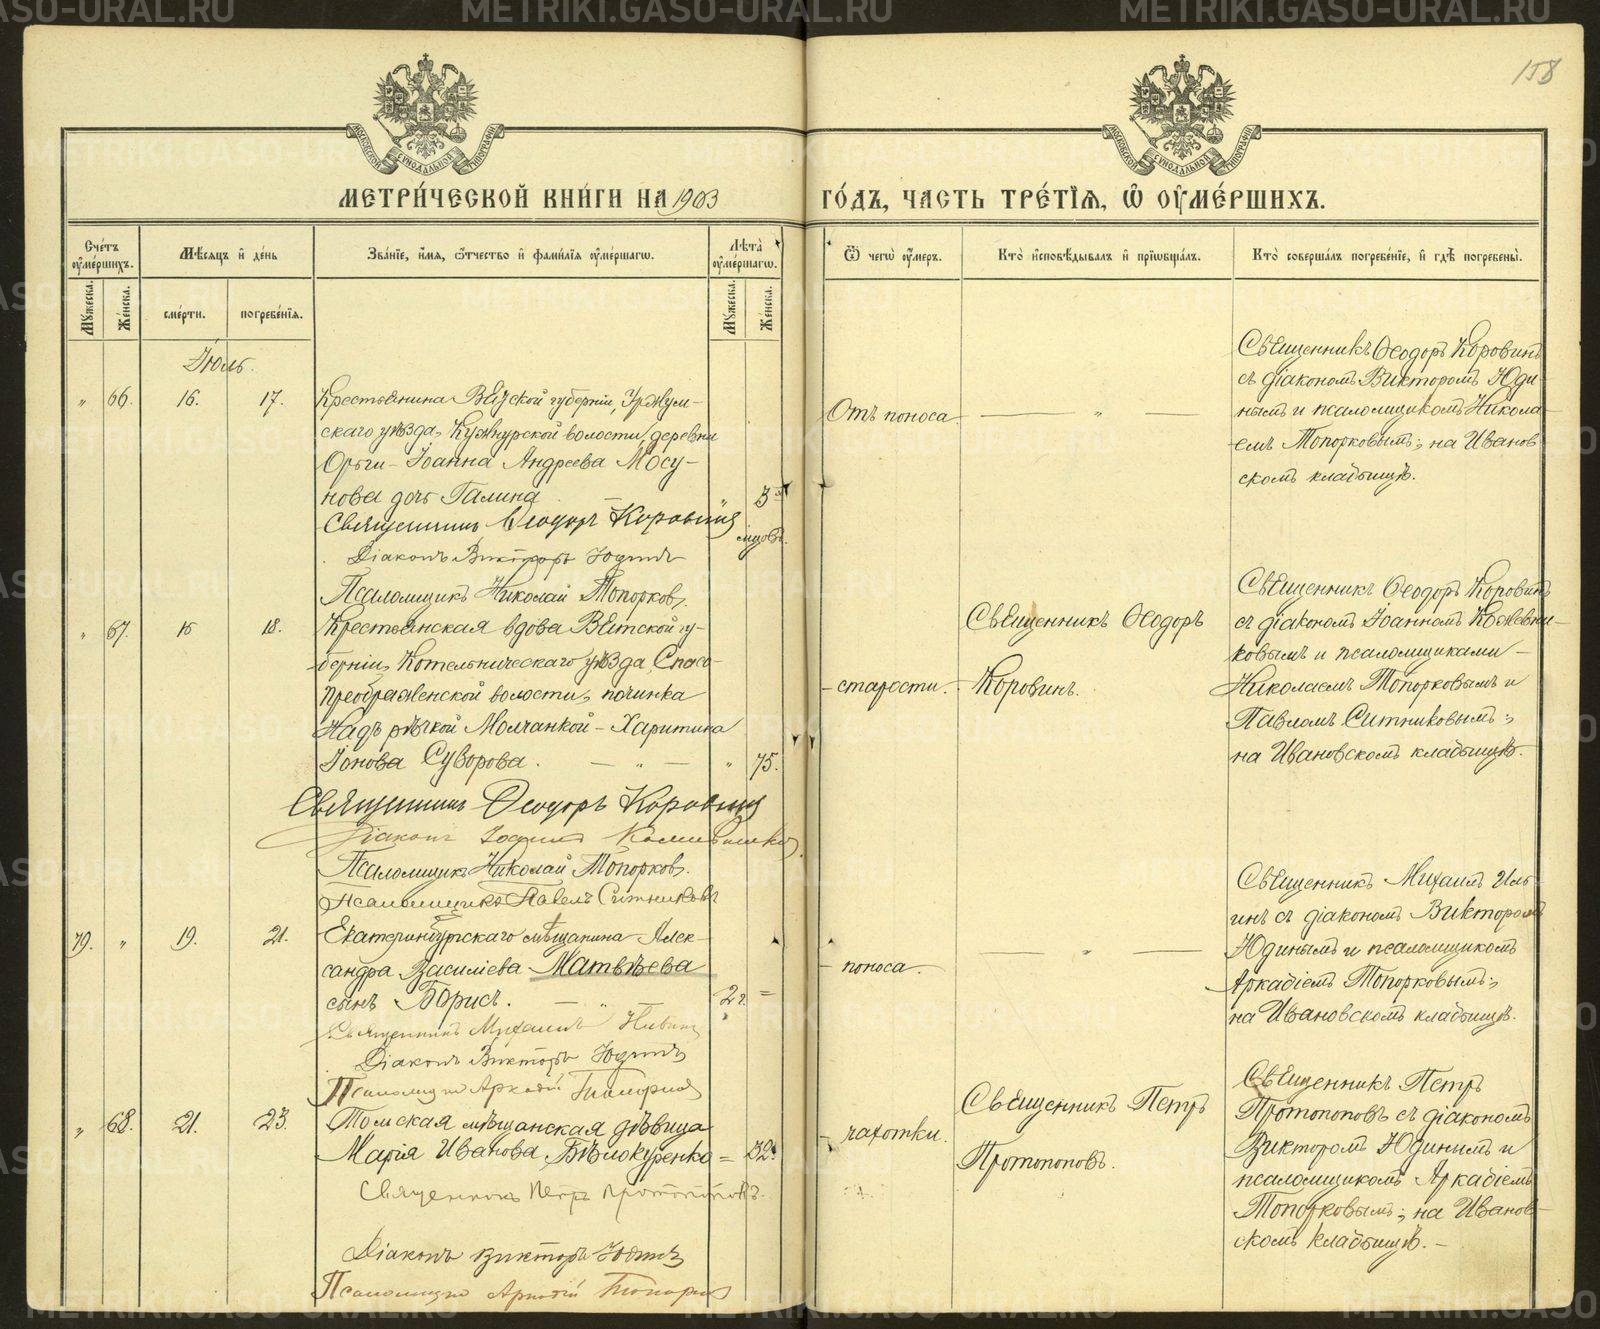 158
МЕТРИ́ЧЕСКОЙ КНИ́ГИ НА 1903
ГО́ДЪ, ЧАСТЬ ТРЕ́ТІѦ, Ѡ҆ ОУ҆МЕ́РШИХЪ.
Сче́тъ оу҆ме́ршихъ.
Мѣ́сяцъ и҆ де́нь
Зва́нїе, и҆́мя, ѻ҆́тчество и҆ фами́лїя оу҆ме́ршагѡ.
Лѣта̀ оу҆ме́ршагѡ.
Ѿ чегѡ̀ оу҆́меръ.
Кто̀ и҆сповѣ́дывалъ и҆ прїѡбща́лъ.
Кто̀ соверша́лъ погребе́нїе, и҆ гдѣ̀ погребены̀.
Му́жеска.
Же́нска.
сме́рти.
погребе́нїя.
Му́жеска.
Же́нска.
Іюль.
„ 66. 16. 17.
Крестьянина Вятской губерніи, Уржум-
скаго уѣзда, Кужнурской волости, деревни
Орьги – Іоанна Андреева Мосу-
нова дочь Галина
3
мѣсяцевъ
Священникъ Ѳеодоръ Коровинъ
Діаконъ Викторъ Юдинъ
Псаломщикъ Николай Топорковъ.
Отъ поноса
Священникъ Ѳеодоръ Коровинъ
съ діакономъ Викторомъ Юди-
нымъ и псаломщикомъ Никола-
емъ Топорковымъ; на Иванов
скомъ кладбищѣ.
„ 67. 15 18.
Крестьянская вдова Вятской гу-
берніи, Котельническаго уѣзда, Спасо-
Преображенской волости, починка
Надъ рѣчкой Молчанкой – Харитина
Іонова Суворова. – „ – „ 75.
Священникъ Ѳеодоръ Коровинъ
Діаконъ Іоаннъ Кожевниковъ
Псаломщикъ Николай Топорковъ.
Псаломщикъ Павелъ Ситниковъ
– старости.
Священникъ Ѳеодоръ
Коровинъ.
Священникъ Ѳеодоръ Коровинъ
съ діакономъ Іоанномъ Кожевни-
ковымъ и псаломщиками –
Николаемъ Топорковымъ и
Павломъ Ситниковымъ;
на Ивановскомъ кладбищѣ.
79. „ 19. 21.
Екатеринбургскаго мѣщанина Алек-
сандра Василіева Матвѣева
сынъ Борисъ. – „ – 2 г. =
Священникъ Михаилъ
Діаконъ Викторъ Юдинъ
Псаломщикъ Аркадій Топорковъ
– поноса –
Священникъ Михаилъ Иль-
инъ съ діакономъ Викторомъ
Юдинымъ и псаломщикомъ
Аркадіемъ Топорковымъ;
на Ивановскомъ кладбищѣ.
„ 68. 21. 23.
Томская мѣщанская дѣвица
Марія Иванова Бѣлокуренко = 32.
Священникъ Петръ Протопоповъ.
Діаконъ Викторъ Юдинъ
Псаломщикъ Аркадій Топорковъ
– чахотки.
Священникъ Петръ
Протопоповъ.
Священникъ Петръ
Протопоповъ съ діакономъ
Викторомъ Юдинымъ и
псаломщикомъ Аркадіемъ
Топорковымъ; на Иванов-
скомъ кладбищѣ. –
METRIKI.GASO-URAL.RU